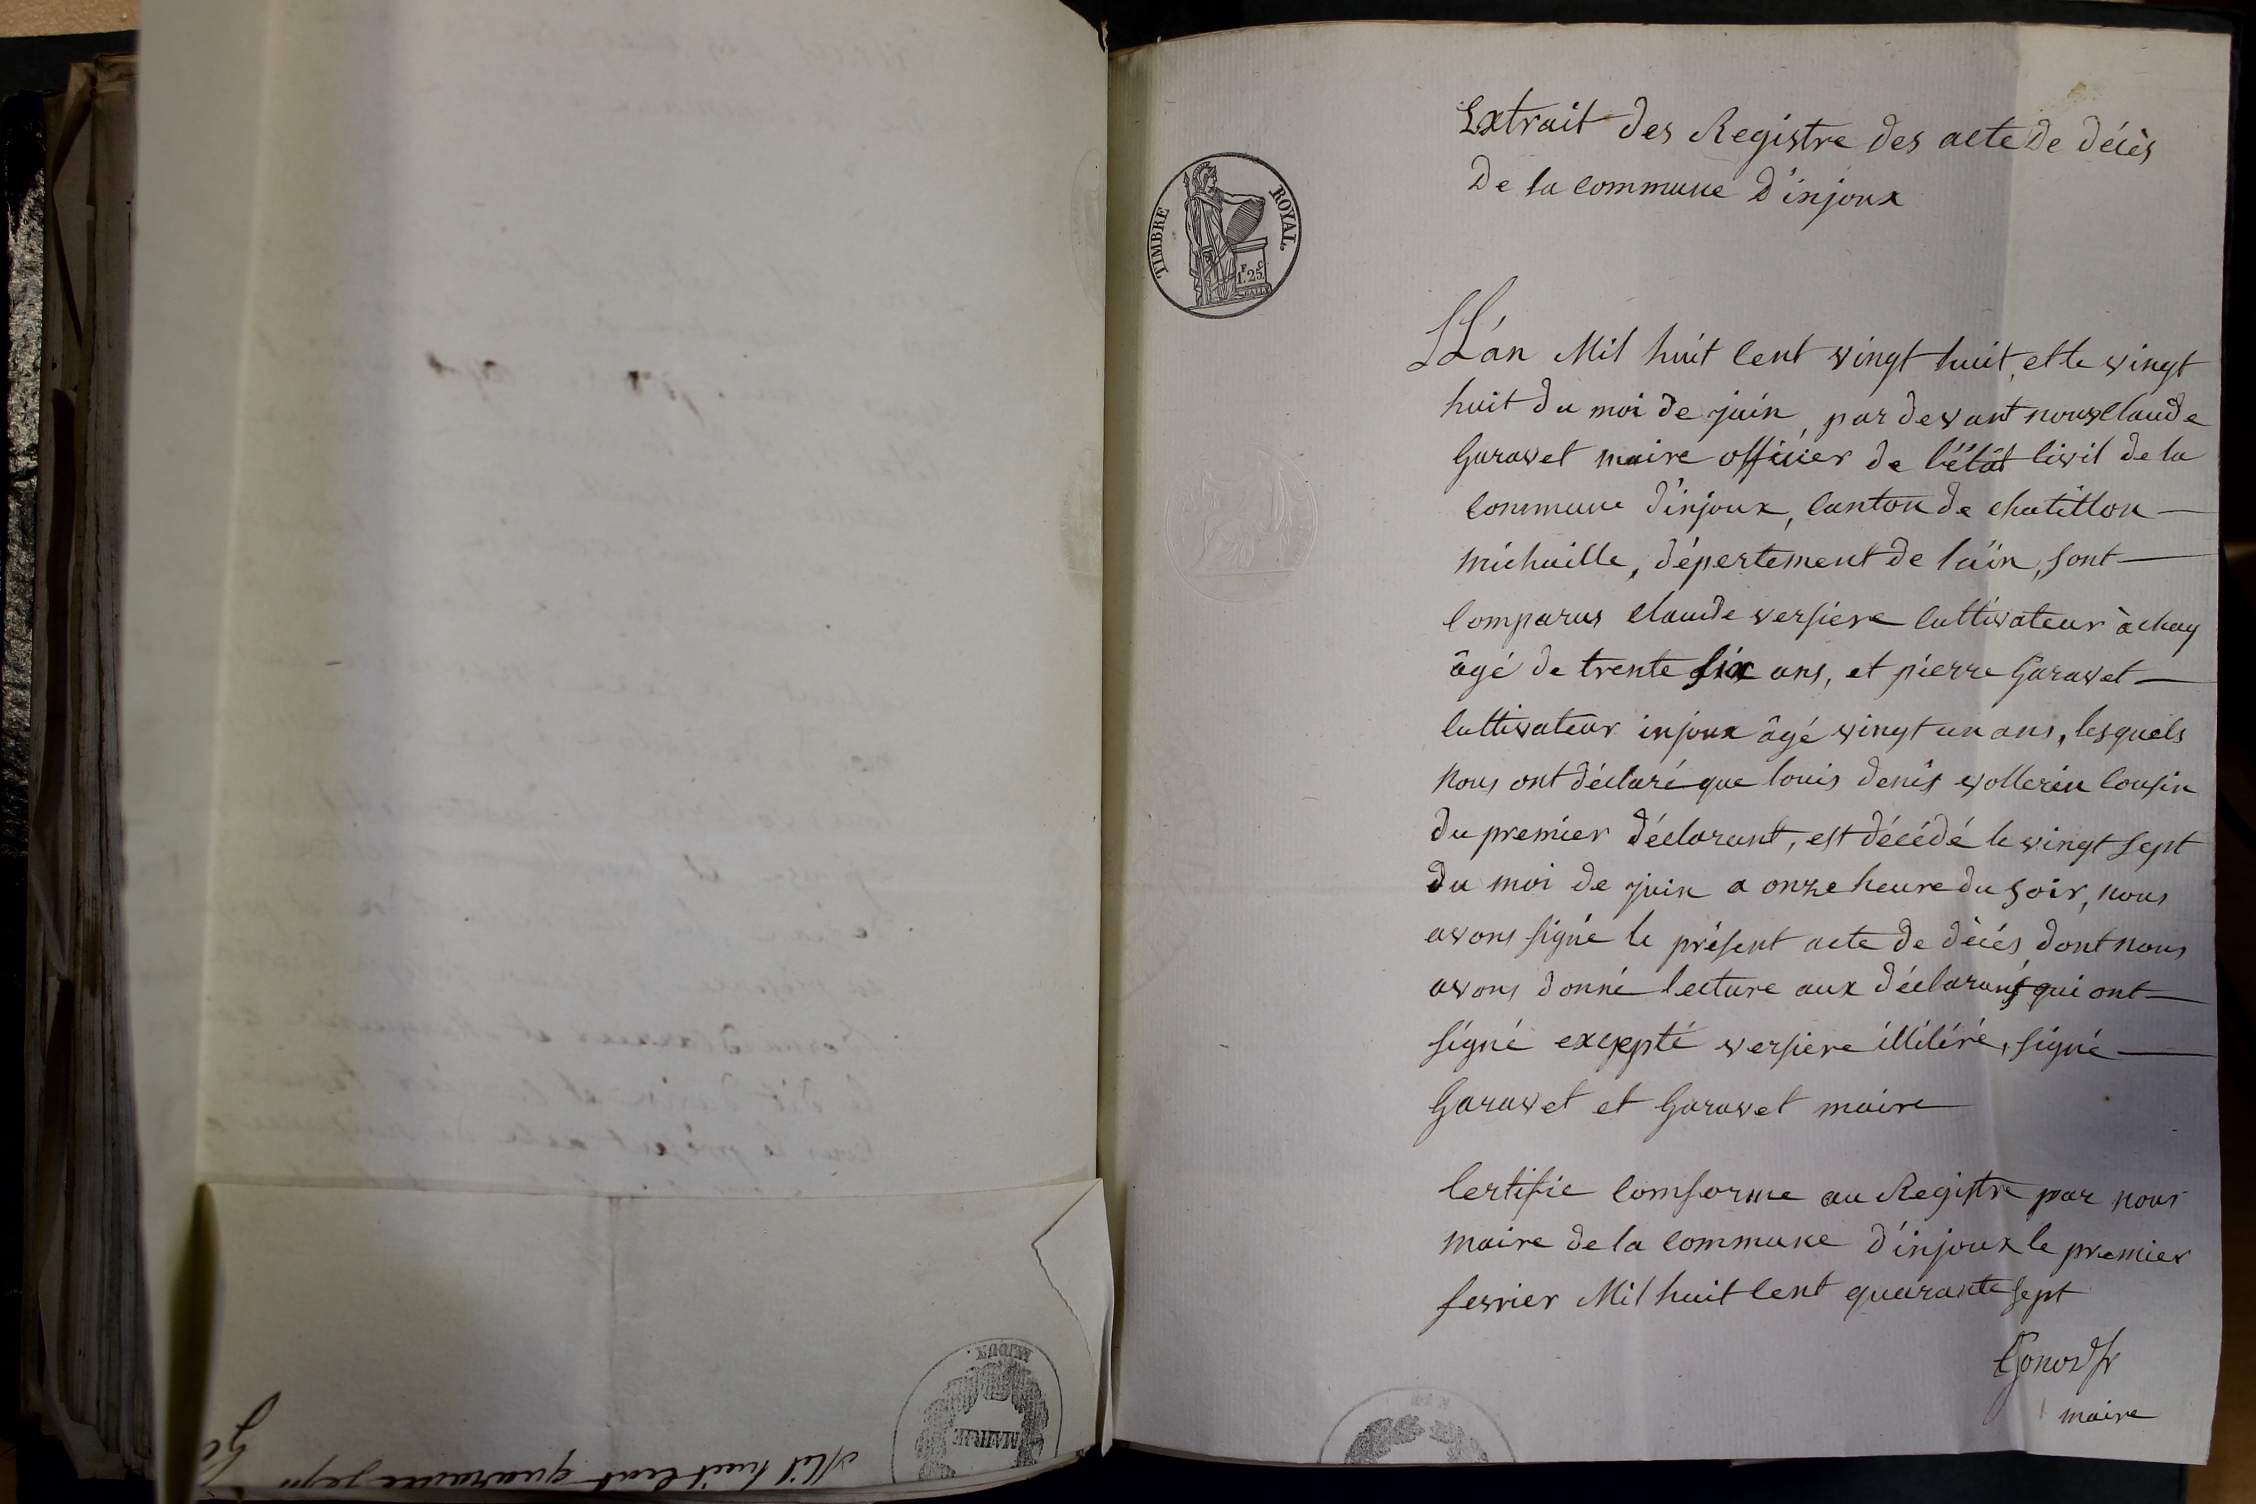 Extrait des Registre des acte de décès
De la commune D'injoux
TIMBRE ROYAL.
1.F 25.C
L'an Mil huit Cent vingt huit, et le vingt
huit du moi de juin, par devant nous Claude
Garavet maire officier de l'état Civil de la
Commune d'injoux, Canton de chatillon
michaille, dépertement de l'ain, sont
Comparus Claude versiere Cultivateur à chay
âgé de trente six ans, et pierre Garavet
Cultivateur injoux âgé vingt un ans, lesquels
Nous ont déclaré que louis denis vollerin Cousin
du premier déclarant, est décédé le vingt sept
du moi de juin a onze heure du soir, nous
avons signé le présent acte de décés dont nous
avons donné lecture aux déclarants qui ont
signé excepté versiere illiléré, signé
Garavet et Garavet maire
Certifie Comforme au Registre par nous
maire de la Commune d'injoux le premier
fevrier Mil huit Cent quarante sept
maire
INJOUX
MAIRIE
Mil huit Cent quarante sept